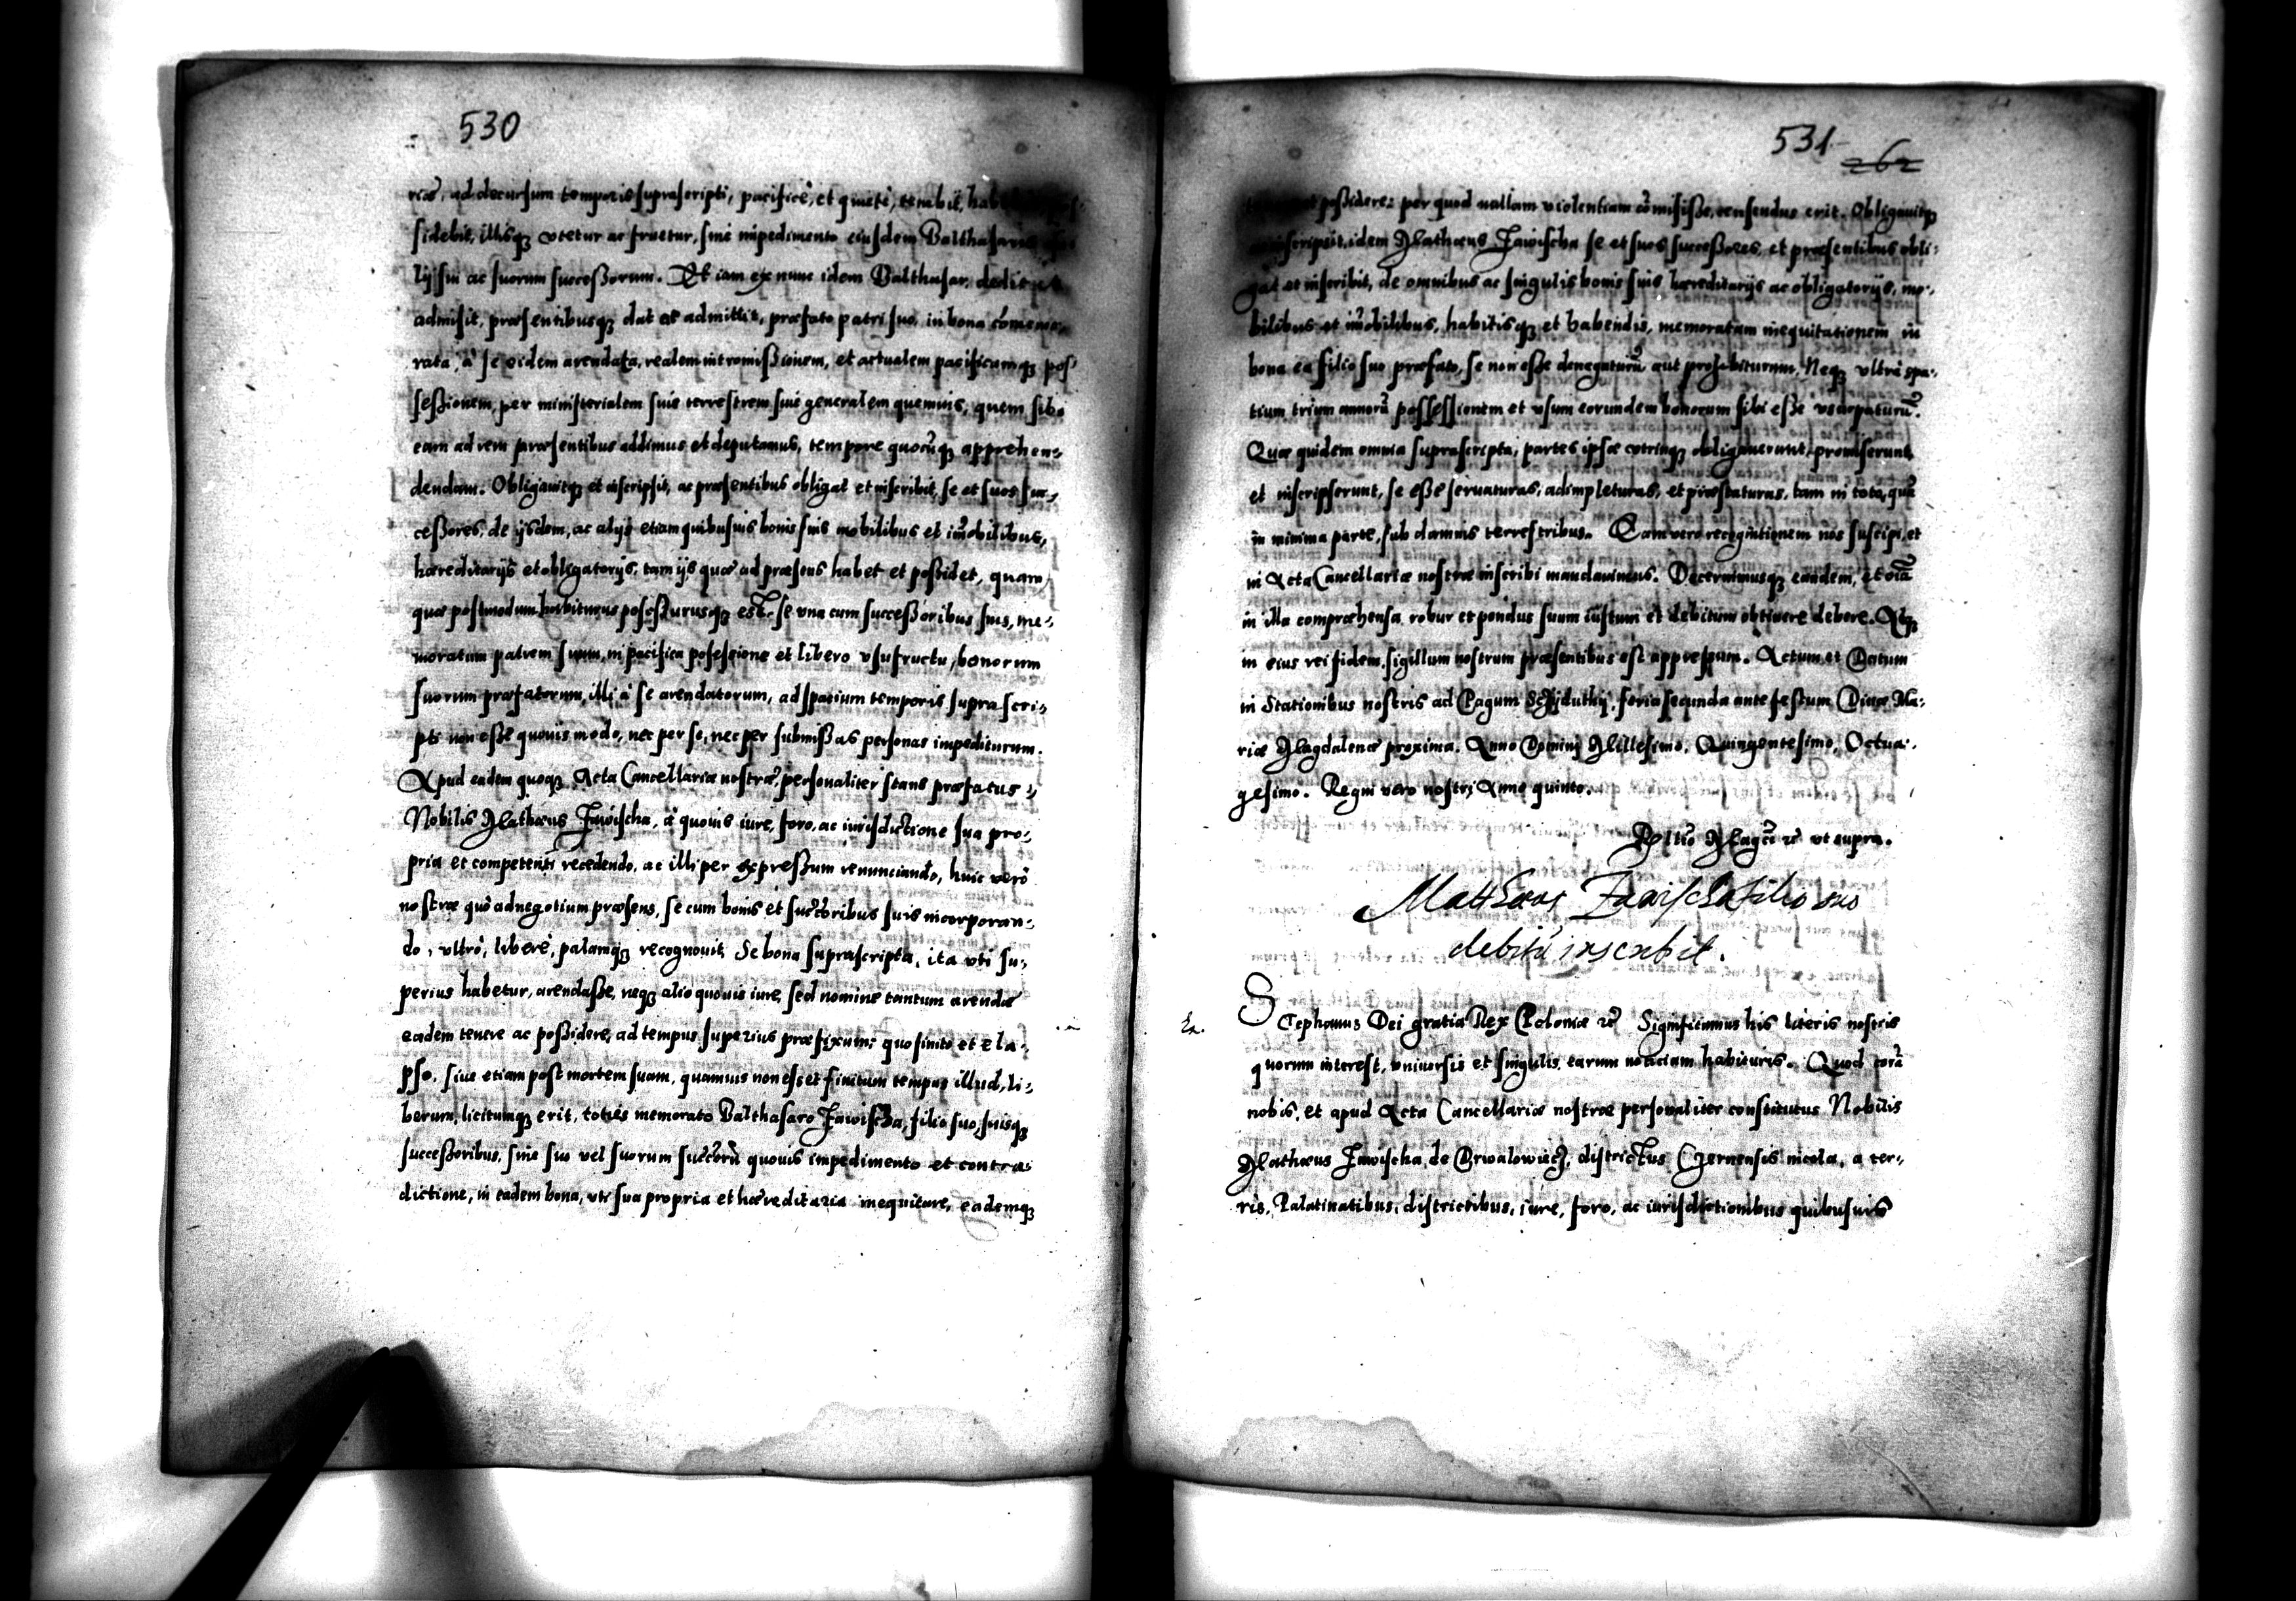 530
riæ, ad decursum temporis suprascripti, pacificè, et quietè, tenebit,
sidebit, illisq₃ vtetur ac fruetur, sine impedimento eiusdem Balthasaris
lij sui ac suorum successorum. Et iam ex nunc idem Balthasar, dedit
admisit, præsentibusq₃ dat et admittit, præfato patri suo, in bona cōmemo-
rata, à se eidem arendata, realem intromissionem, et actualem pacificamq₃ pos-
sessionem, per ministerialem siue terrestrem siue generalem quemuis, quem sibi
eam ad rem præsentibus addimus et deputamus, tempore quocūq₃ apprehen-
dendam. Obligauitq₃ et inscripsit, ac præsentibus obligat et inscribit, se et suos suc-
cessores, de ijsdem, ac alijs etiam quibusuis bonis suis mobilibus et im̄obilibus,
hæreditarijs et obligatorijs, tam ijs quæ ad præsens habet et possidet, quam
quæ postmodum habiturus possessurusq₃ est, se vna cum successoribus suis, me-
moratum patrem suum, in pacifica possessione et libero vsufructu, bonorum
suorum præfatorum, illi à se arendatorum, ad spacium temporis suprascri-
pti non esse quouis modo, nec per se, nec per submissas personas impediturum.
Apud eadem quoq₃ Acta Cancellariæ nostræ, personaliter stans præfatus
Nobilis Mathæus Zawischa, à quouis iure, foro, ac iurisdictione sua pro-
pria et competenti recedendo, ac illi per expressum renunciando, huic verò
nostræ quò ad negotium præsens, se cum bonis et succ̄oribus suis incorporan-
do, vltrò, liberè, palamq₃ recognouit, Se bona suprascripta, ita vti su-
perius habetur, arendasse, neq₃ alio quouis iure, sed nomine tantum arendæ
eadem tenere ac possidere, ad tempus superius præfixum: quo finito et ela-
pso, siue etiam post mortem suam, quamuis non esset finitum tempus illud, li-
berum, licitumq₃ erit, toties memorato Balthasaro Zawischa, filio suo, suisq₃
successoribus, sine suo vel suorum succ̄orū quouis impedimento et contra-
dictione, in eadem bona, vti sua propria et hæreditaria inequitare, eademq₃
531
262
possidere: per quod nullam violentiam cōmisisse, censendus erit. Obligauitq₃
inscripsit, idem Mathæus Zawischa se et suos successores, et præsentibus obli-
gat et inscribit, de omnibus ac singulis bonis suis hæreditarijs ac obligatorijs, mo-
bilibus et im̄obilibus, habitisq₃ et habendis, memoratam inequitationem in
bona ea filio suo præfato, se non esse denegaturū aut prohibiturum. Neq₃ vltrà spa-
tium trium annorū possessionem et vsum eorundem bonorum sibi esse vsurpaturū.
Quæ quidem omnia suprascripta, partes ipsæ vtrinq₃ obligauerunt, promiserunt,
et inscripserunt, se esse seruaturas, adimpleturas, et præstaturas, tam in toto, quā
in minima parte, sub damnis terrestribus. Quam vero recognitionem nos suscipi, et
in Acta Cancellariæ nostræ inscribi mandauimus. Decernimusq₃ eandem, et oīa
in illa compræhensa, robur et pondus suum iustum et debitum obtinere debere. Atq₃
in eius rei fidem, sigillum nostrum præsentibus est appressum. Actum et Datum
in Stationibus nostris ad Pagum, feria secunda ante festum Diuæ Ma-
riæ Magdalenæ proxima. Anno Domini Millesimo, Quingentesimo, Octua-
gesimo. Regni vero nostri Anno quinto.
Rltio Magci etc vt supra.
Matthæus Zawischa filio suo
debitū inscribit.
Stephanus Dei gratia Rex Poloniæ etc Significamus his literis nostris
quorum interest, vniuersis et singulis, earum noticiam habituris. Quod corā
nobis, et apud Acta Cancellariæ nostræ personaliter constitutus Nobilis
Mathæus Zawischa de Brwalowiecz, districtus Czernensis incola, a ter-
ris, Palatinatibus, districtibus, iure, foro, ac iurisdictionibus quibusuis